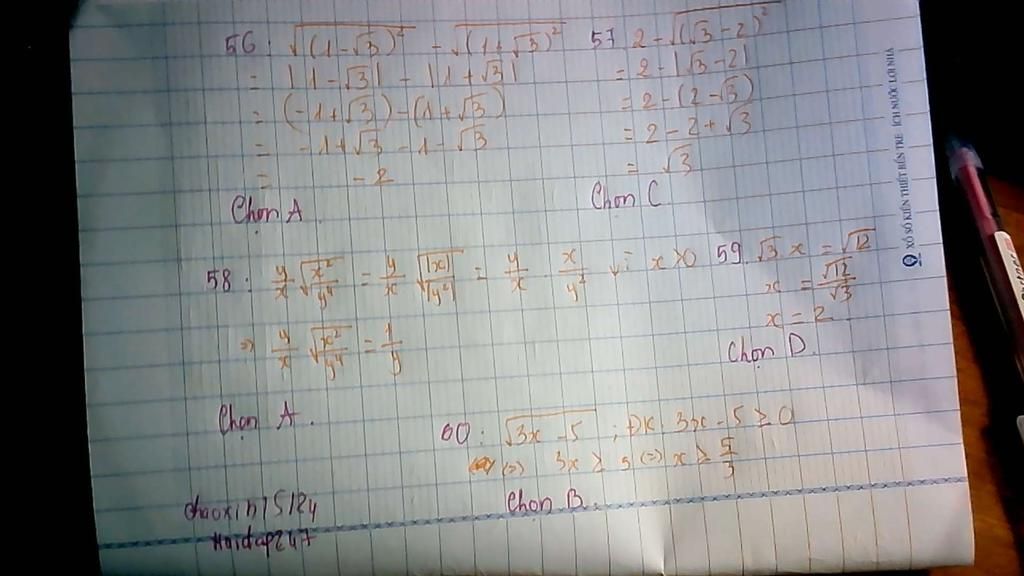 56. √(1-√3)² - √(1+√3)²
= |1-√3| - |1+√3|
= (-1+√3) - (1+√3)
= -1+√3 - 1 - √3
= -2
Chọn A
57 2 - √(√3-2)²
= 2 - |√3-2|
= 2 - (2-√3)
= 2 - 2 + √3
= √3
Chọn C
58: y/x √x²/y⁴ = y/x √|x|/|y²| = y/x . x/y² vì x>0
=> y/x √x²/y⁴ = 1/y
Chọn A.
59. √3 x = √12
x = √12/√3
x = 2
Chọn D.
60: √3x-5 ; ĐK 3x-5 ≥ 0
(=) 3x ≥ 5 (=) x ≥ 5/3
Chọn B.
chaoxin15124
Hoidap247
XỔ SỐ KIẾN THIẾT BẾN TRE ÍCH NƯỚC LỢI NHÀ